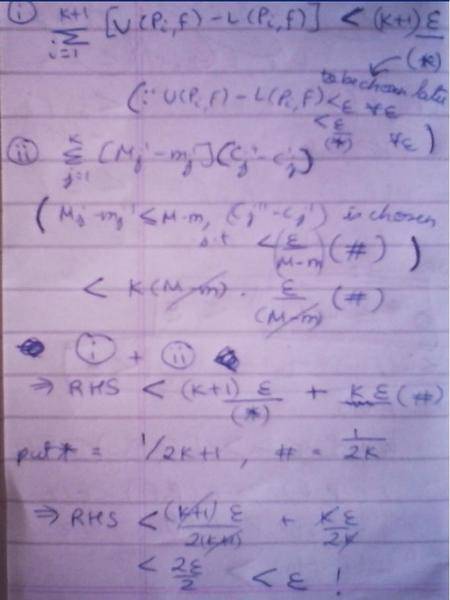 ① Σ_{i=1}^{k+1} [U(Pi,f) - L(Pi,f)] < (k+1) ε/(*)
to be chosen later
(∵ U(Pi,f) - L(Pi,f) < ε ∀ε
< ε/(*) ∀ε)
② Σ_{j=1}^{k} [Mj' - mj'] (Cj'' - Cj')
(Mj' - mj' ≤ M-m, (Cj'' - Cj') is chosen
s.t < (ε/M-m) (#) )
< K(M-m) . ε/(M-m) (#)
① + ②
⇒ RHS < (k+1) ε/(*) + k ε (#)
put * = 1/2k+1, # = 1/2k
⇒ RHS < (k+1) ε/2(k+1) + k ε/2k
< 2ε/2 < ε !